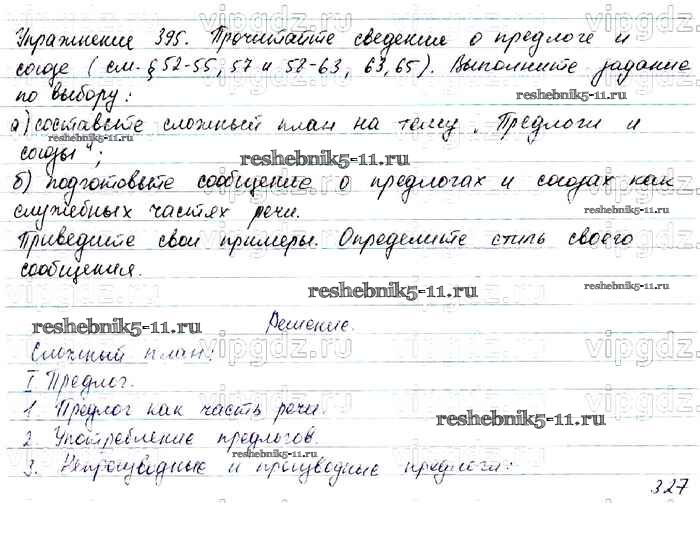 Упражнение 395. Прочитайте сведение о предлоге и
союзе (см. § 52-55, 57 и 58-63, 63, 65). Выполните задание
по выбору:
reshebnik5-11.ru
а) составьте сложный план на тему „Предлоги и
союзы";
reshebnik5-11.ru
б) подготовьте сообщение о предлогах и союзах как
служебных частях речи.
reshebnik5-11.ru
Приведите свои примеры. Определите стиль своего
сообщения.
reshebnik5-11.ru
vipgdz
reshebnik5-11.ru
Решение.
Сложный план:
I Предлог.
1. Предлог как часть речи.
reshebnik5-11.ru
2. Употребление предлогов.
3. Непроизводные и производные предлоги:
327